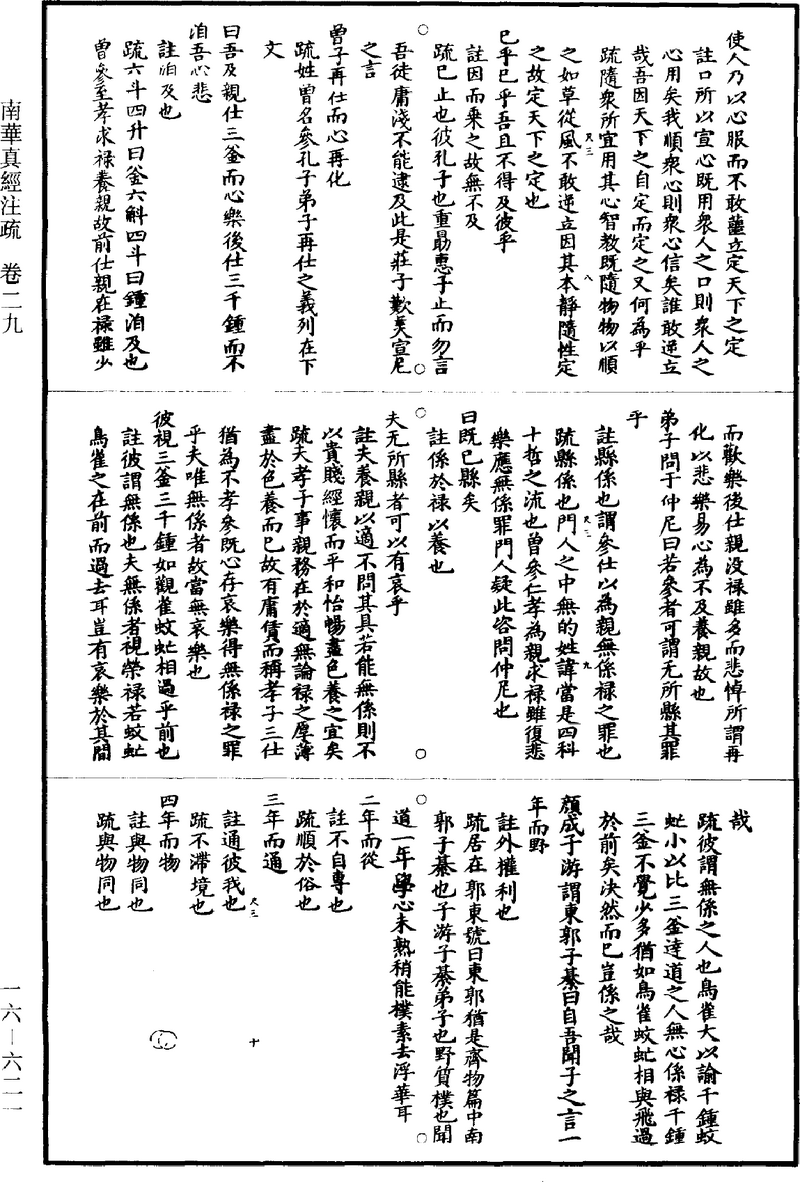 南華真經注疏　卷二九
使人乃以心服而不敢蘁立定天下之定
註口所以宣心既用衆人之口則衆人之
心用矣我順衆心則衆心信矣誰敢逆立
哉吾因天下之自定而定之又何為乎
疏隨衆所宜用其心智教既隨物物以順
之如草從風不敢逆立因其本靜隨性定
之故定天下之定也
已乎已乎吾且不得及彼乎
註因而乘之故無不及
疏已止也彼孔子也重勗惠子止而勿言
吾徒庸淺不能逮及此是莊子歎美宣尼
之言
曾子再仕而心再化
疏姓曾名參孔子弟子再仕之義列在下
文
曰吾及親仕三釜而心樂後仕三千鍾而不
洎吾心悲
註洎及也
疏六斗四升曰釜六斛四斗曰鍾洎及也
曾參至孝求祿養親故前仕親在祿雖少
而歡樂後仕親没祿雖多而悲悼所謂再
化以悲樂易心為不及養親故也
弟子問于仲尼曰若參者可謂无所縣其罪
乎
註縣係也謂參仕以為親無係祿之罪也
疏縣係也門人之中無的姓諱當是四科
十哲之流也曾參仁孝為親求祿雖復悲
樂應無係罪門人疑此咨問仲尼也
曰既已縣矣
註係於祿以養也
夫无所縣者可以有哀乎
註夫養親以適不問其具若能無係則不
以貴賤經懷而平和怡暢盡色養之宜矣
疏夫孝子事親務在於適無論祿之厚薄
盡於色養而已故有庸賃而稱孝子三仕
猶為不孝參既心存哀樂得無係祿之罪
乎夫唯無係者故當無哀樂也
彼視三釜三千鍾如觀雀蚊虻相過乎前也
註彼謂無係也夫無係者視榮祿若蚊虻
鳥雀之在前而過去耳豈有哀樂於其間
哉
疏彼謂無係之人也鳥雀大以諭千鍾蚊
虻小以比三釜達道之人無心係祿千鍾
三釜不覺少多猶如鳥雀蚊虻相與飛過
於前矣決然而已豈係之哉
顏成子游謂東郭子綦曰自吾聞子之言一
年而野
註外權利也
疏居在郭東號曰東郭猶是齊物篇中南
郭子綦也子游子綦弟子也野質樸也聞
道一年學心未熟稍能樸素去浮華耳
二年而從
註不自專也
疏順於俗也
三年而通
註通彼我也
疏不滯境也
四年而物
註與物同也
疏與物同也
一六—六二一